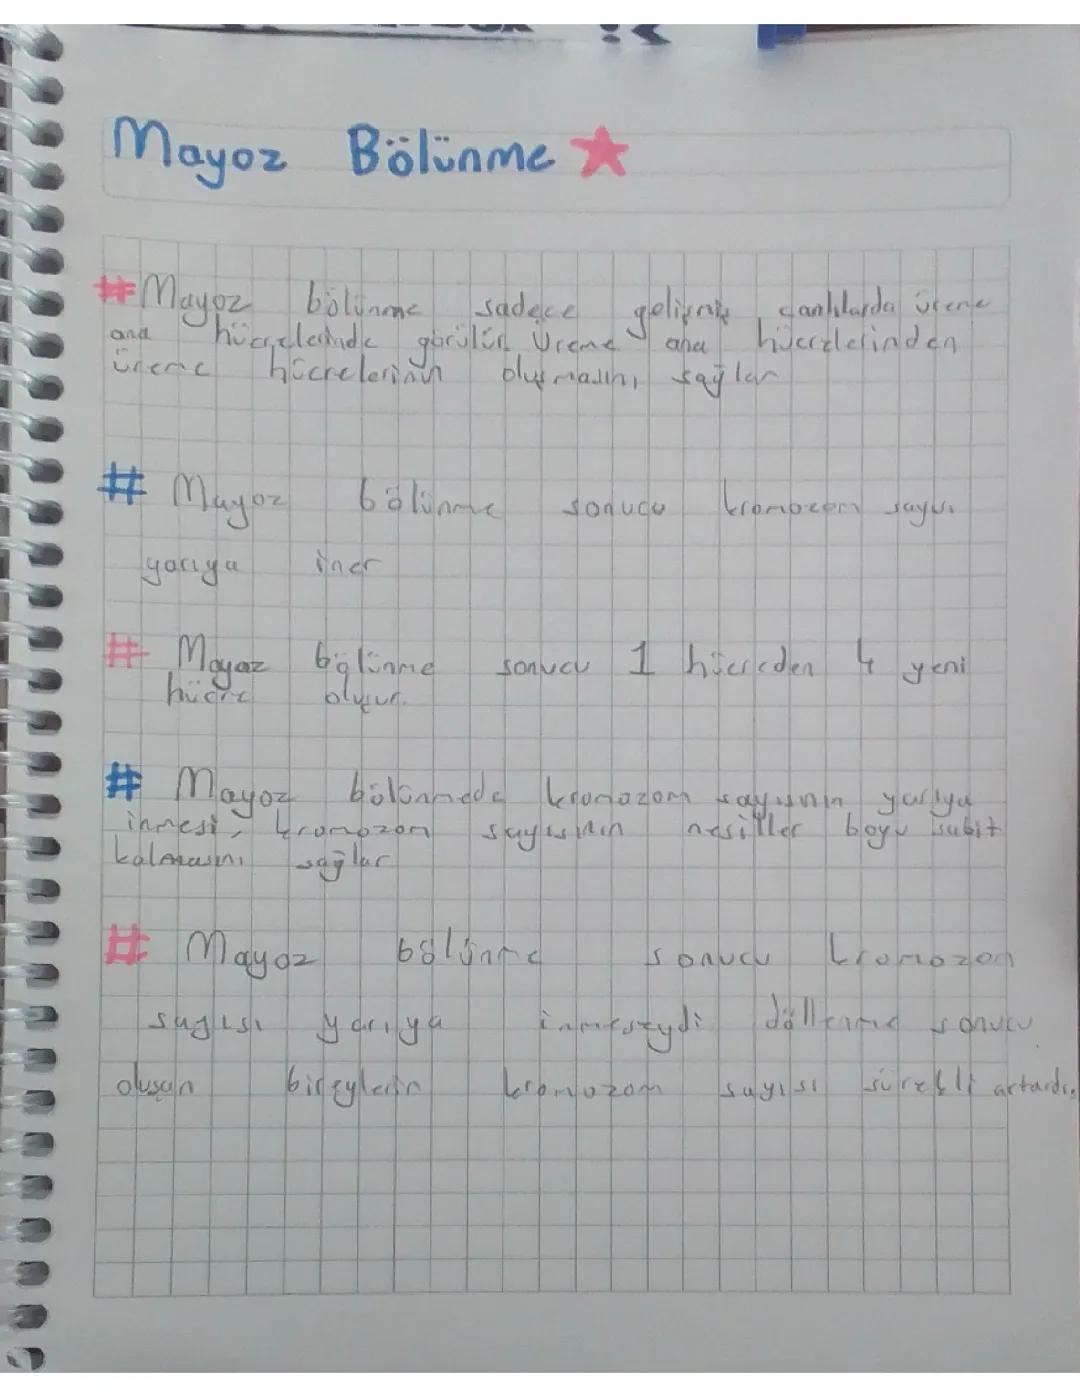 Mayoz Bölünme
# Mayoz bölünme sadece gelişmiş canlılarda üreme
ana hücrelerinde görülür. Üreme ana hücrelerinden
üreme hücrelerinin oluşmasını sağlar
# Mayoz bölünme sonucu kromozom sayısı
yarıya iner
# Mayoz bölünme sonucu 1 hücreden 4 yeni
hücre oluşur.
# Mayoz bölünmede kromozom sayısının yarıya
inmesi, kromozom sayısının nesiller boyu sabit
kalmasını sağlar
# Mayoz bölünme sonucu kromozom
sayısı yarıya inmeseydi döllenme sonucu
oluşan bireylerin kromozom sayısı sürekli artardı.